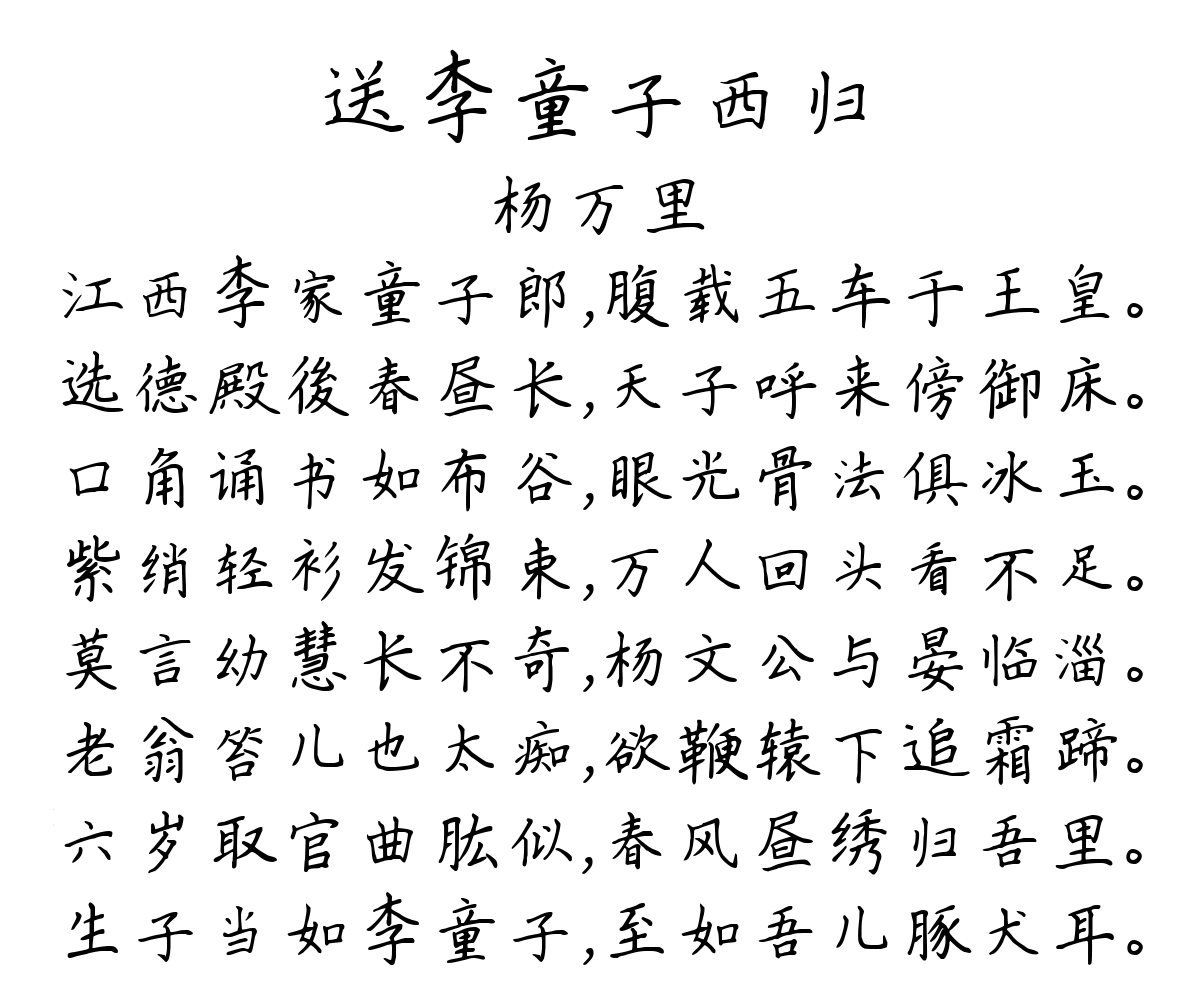 送李童子西归
杨万里
江西李家童子郎,腹载五车干王皇。
选德殿後春昼长,天子呼来傍御床。
口角诵书如布谷,眼光骨法俱冰玉。
紫绡轻衫发锦束,万人回头看不足。
莫言幼慧长不奇,杨文公与晏临淄。
老翁笞儿也太痴,欲鞭辕下追霜蹄。
六岁取官曲肱似,春风昼绣归吾里。
生子当如李童子,至如吾儿豚犬耳。